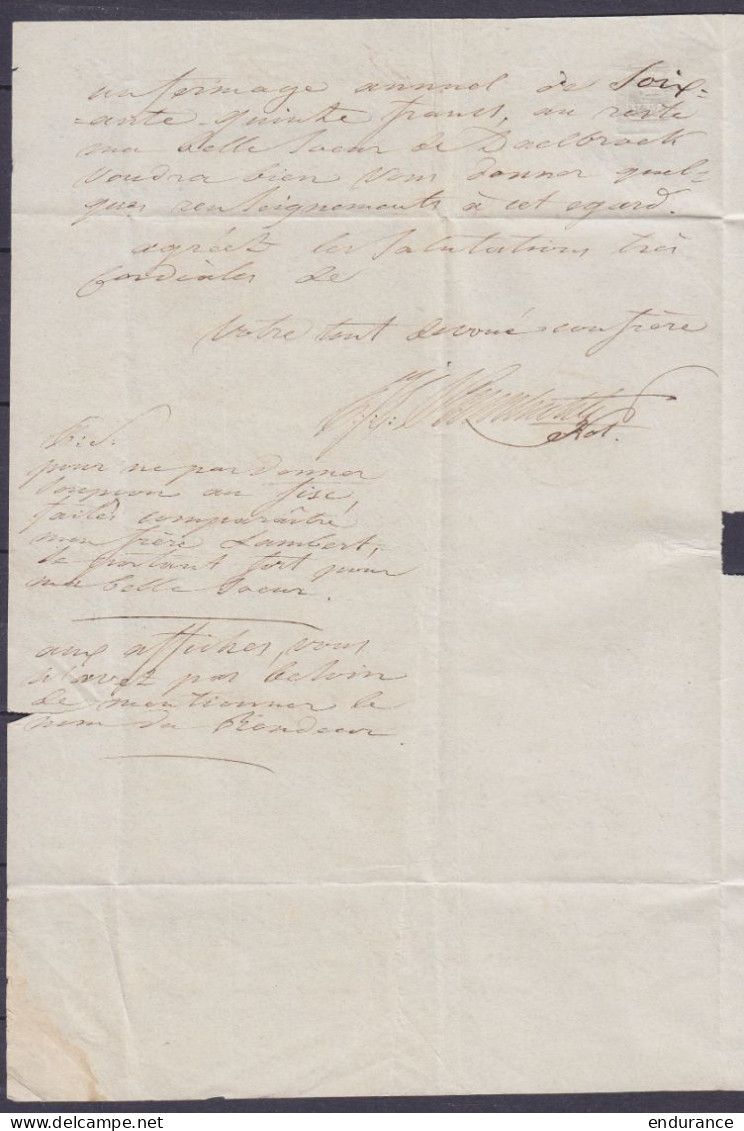 un fermage annuel de soix=
=ante quinze francs, au reste
ma belle soeur de Daelbroek
voudra bien vous donner quel=
ques renseignements à cet egard.
agréez les salutations très
cordiales de
Votre tout devoué confrère
Not.
P.S.
pour ne pas donner
soupçon au fisc,
faites comparaître
mon frère Lambert,
se portant fort pour
ma belle soeur.
aux affiches, vous
n'avez pas besoin
de mentionner le
nom du Vendeur.
endurance